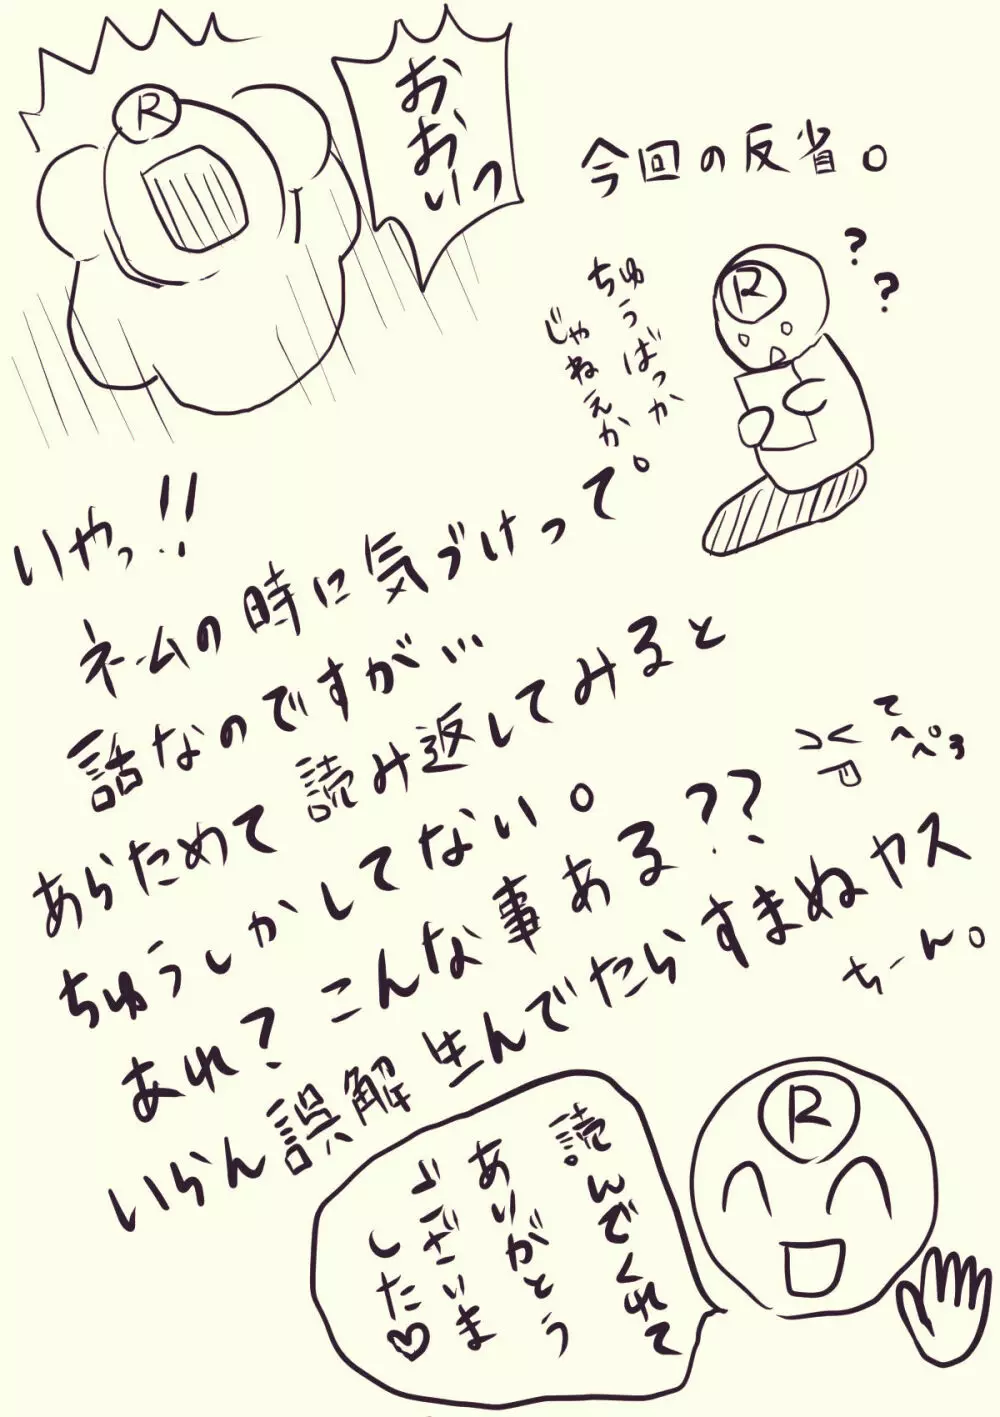 今回の反省。
R
??
ちゅうばっか
じゃねぇか。
おおいっ
R
いやっ!!
ネームの時に気づけって
話なのですが…
あらためて読み返してみると
ちゅうしかしてない。
あれ?こんな事ある??
てへぺろ
いらん誤解生んでたらすまぬヤス
ちーん。
R
読んでくれて
ありがとう
ございま
した♡